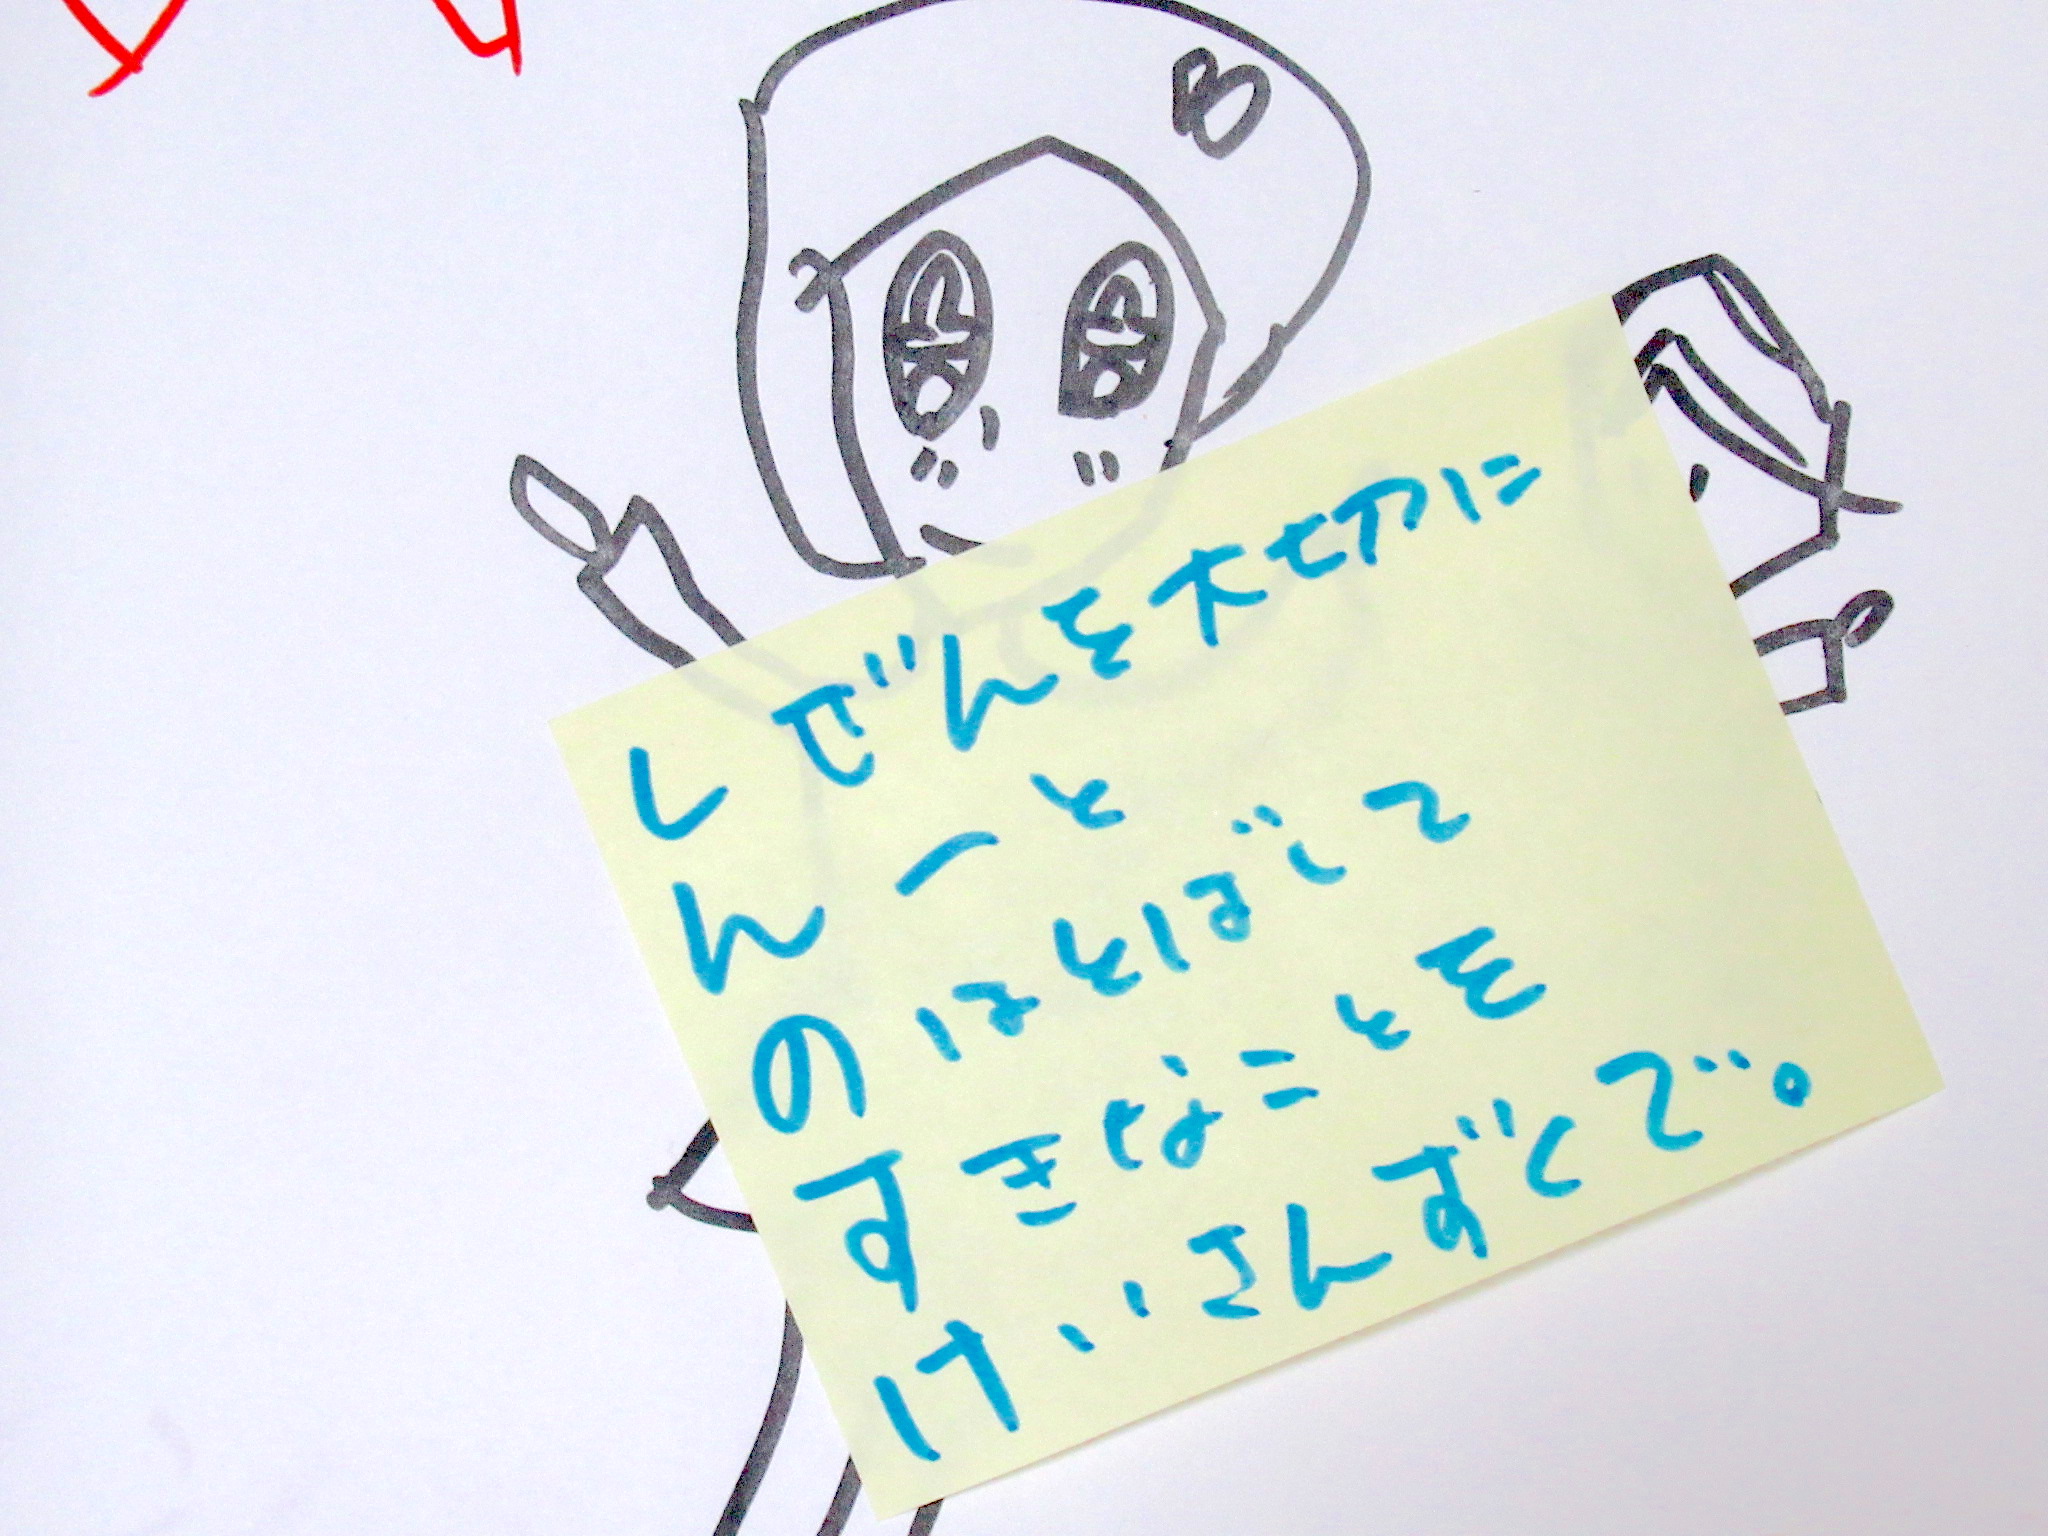 しぜんを大切に
んーと
のはとばして
すきなことを
けいさんずくで。